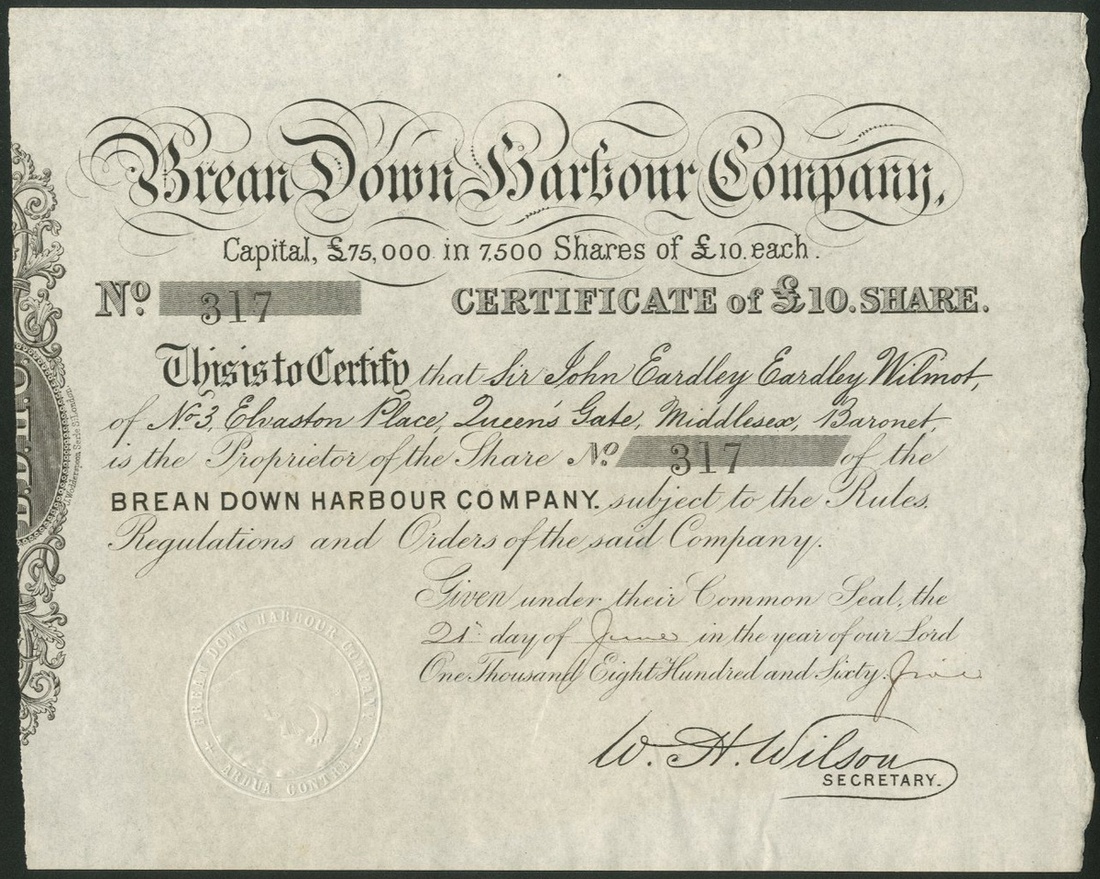 Brean Down Harbour Company,
Capital, £75,000 in 7,500 Shares of £10. each.
No. 317 CERTIFICATE of £10. SHARE.
This is to Certify that Sir John Eardley Eardley Wilmot,
of No 3, Elvaston Place, Queen's Gate, Middlesex, Baronet,
is the Proprietor of the Share No. 317 of the
BREAN DOWN HARBOUR COMPANY. subject to the Rules.
Regulations and Orders of the said Company.
Given under their Common Seal, the
21st day of June in the year of our Lord
One Thousand Eight Hundred and Sixty five
W. H. Wilson
SECRETARY.
BREAN DOWN HARBOUR COMPANY
ARDUA CONTRA
B.D.H.C